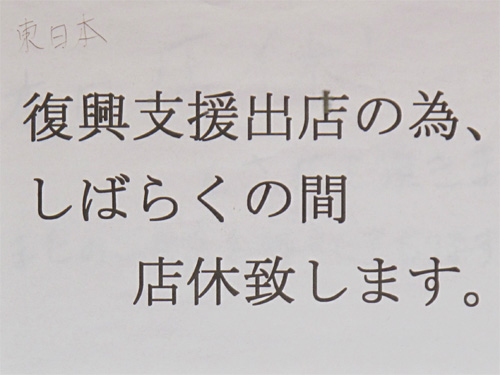 東日本
復興支援出店の為、
しばらくの間
店休致します。